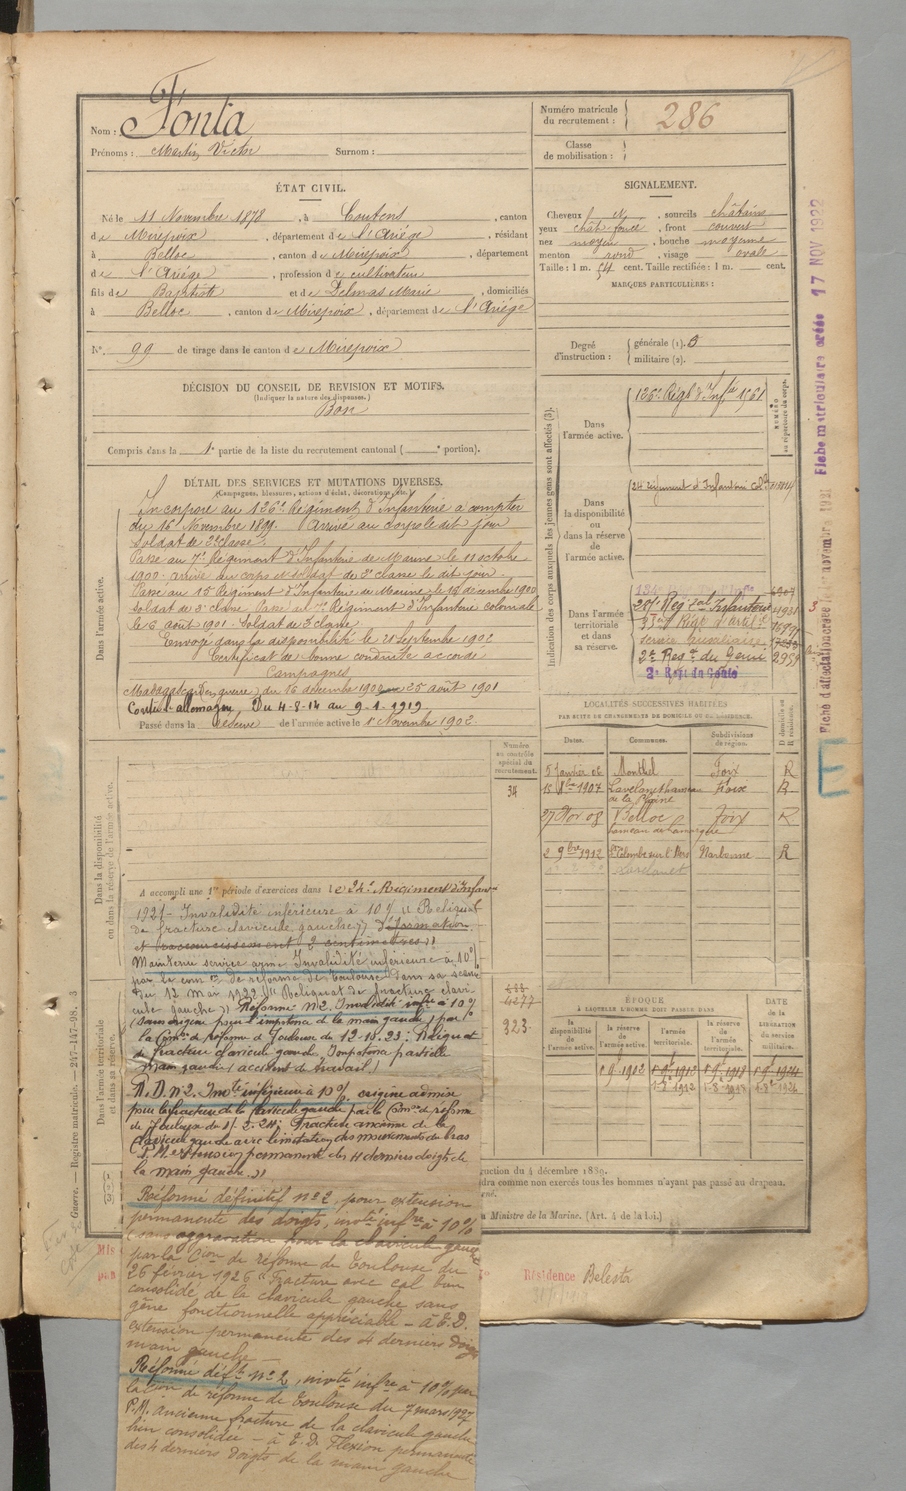 Nom : Fonta
Prénoms : Martin Victor Surnom :
Numéro matricule du recrutement : 286
Classe de mobilisation :
ÉTAT CIVIL.
Né le 11 Novembre 1878, à Coutens, canton
de Mirepoix, département de l'Ariége, résidant
à Belloc, canton de Mirepoix, département
de l'Ariége, profession de cultivateur
fils de Baptiste et de Delmas Marie, domiciliés
à Belloc, canton de Mirepoix, département de l'Ariége
N° 99 de tirage dans le canton de Mirepoix
SIGNALEMENT.
Cheveux , sourcils châtains
yeux chât. foncé, front couvert
nez moyen, bouche moyenne
menton rond, visage ovale
Taille : 1 m. 54 cent. Taille rectifiée : 1 m. cent.
MARQUES PARTICULIÈRES :
Degré d'instruction : générale (1). 3
militaire (2).
DÉCISION DU CONSEIL DE REVISION ET MOTIFS.
(Indiquer la nature des dispenses.)
Bon
Compris dans la 1e partie de la liste du recrutement cantonal ( e portion).
DÉTAIL DES SERVICES ET MUTATIONS DIVERSES.
(Campagnes, blessures, actions d'éclat, décorations, etc.)
Dans l'armée active.
Incorporé au 126e Régiment d'Infanterie à compter
du 16 Novembre 1899. Arrivé au corps le dit jour
Soldat de 2e classe.
Passé au 7e Régiment d'Infanterie de Marine le 11 octobre
1900. arrivé au corps et soldat de 2e classe le dit jour.
Passé au 15 Régiment d'Infanterie de Marine, le 16 décembre 1900
soldat de 2e classe. Passé au 7e Régiment d'Infanterie coloniale
le 6 août 1901. Soldat de 2e classe
Envoyé dans la disponibilité le 21 Septembre 1902
Certificat de bonne conduite accordé
Campagnes
Madagascar (en guerre) du 16 décembre 1900 au 25 août 1901
Contre l'allemagne, Du 4-8-14 au 9-1-1919
Passé dans la Réserve de l'armée active le 1e Novembre 1902
Indication des corps auxquels les jeunes gens sont affectés (3).
NUMÉRO au répertoire du corps.
Dans l'armée active.
126e Régt d'Infie 1961
Dans la disponibilité ou dans la réserve de l'armée active.
24 régiment d'Infanterie Cle
Dans l'armée territoriale et dans sa réserve.
service auxiliaire
2e Regt du Génie 2959
2e Regt du Génie
LOCALITÉS SUCCESSIVES HABITÉES
PAR SUITE DE CHANGEMENTS DE DOMICILE OU DE RÉSIDENCE.
Dates. Communes. Subdivisions de région. D domicile ou R résidence.
5 Janvier 06 Monthel Foix R
15 8bre 1907 Lavelanet hameau de la Plaine Foix R
27 Nov 08 Belloc Foix R
2 9bre 1912 Ste Colombe sur l'Hers Narbonne R
Numéro au contrôle spécial du recrutement.
34
Dans la disponibilité ou dans la réserve de l'armée active.
A accompli une 1re période d'exercices dans le 24e Régiment d'Infan
1921 - Invalidité inférieure à 10 % "Reliquat
de fracture clavicule gauche"
Maintenu service armé Invalidité inférieure à 10 %
par la comon de réforme de Toulouse dans sa séance
du 12 Mai 1922 "Reliquat de fracture clavi-
cule gauche" Réformé n°2. Invalidité infre à 10 %
(sans origine pour l'impotence de la main gauche) par
la Comon de réforme de Toulouse du 12-10-23 : Reliquat
de fracture clavicule gauche. Impotence partielle
main gauche (accident de travail)
R. D. n°2. Invté inférieure à 10 %, origine admise
pour la fracture de la clavicule gauche par la Comon de réforme
de Toulouse
clavicule gauche avec limitation des mouvements du bras
P.M. extension permanente des 4 derniers doigts de
la main gauche."
Réformé définitif n°2, pour extension
permanente des doigts, invté infre à 10 %
(sans aggravation pour la clavicule gauche
par la Cion de réforme de Toulouse du
26 février 1926 "Fracture avec cal bien
consolidé, de la clavicule gauche sans
gêne fonctionnelle appréciable - à E.D.
extension permanente des 4 derniers doigts
main gauche -
Réformé déft n°2, invté infre à 10 % par
la Cion de réforme de Toulouse du 7 mars 1927
P.M. ancienne fracture de la clavicule gauche
bien consolidée - à E.D. Flexion permanente
des 4 derniers doigts de la main gauche
4277
323
Dans l'armée territoriale et dans sa réserve.
ÉPOQUE
À LAQUELLE L'HOMME DOIT PASSER DANS
la disponibilité de l'armée active. la réserve de l'armée active. l'armée territoriale. la réserve de l'armée territoriale.
DATE de la LIBÉRATION du service militaire.
1 9 1902
uction du 4 décembre 1889.
udra comme non exercés tous les hommes n'ayant pas passé au drapeau.
u Ministre de la Marine. (Art. 4 de la loi.)
Résidence Belesta
Guerre. — Registre matricule. — 247-147-98. 3
Fiche matriculaire créée 17 NOV 1922
E